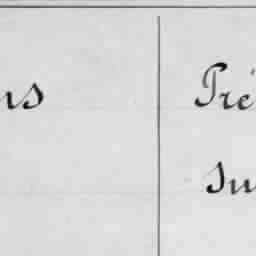 ns
Pré
Su